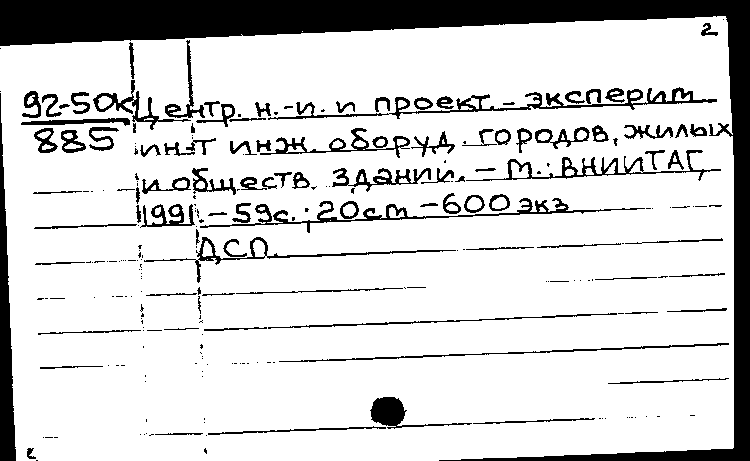 2
92-50к Центр. н.-и. и проект.-эксперим
885 ин-т инж. оборуд. городов, жилых
и обществ. зданий. – М.: ВНИИТАГ,
1991. – 59с.; 20см – 600 экз
ДСП.